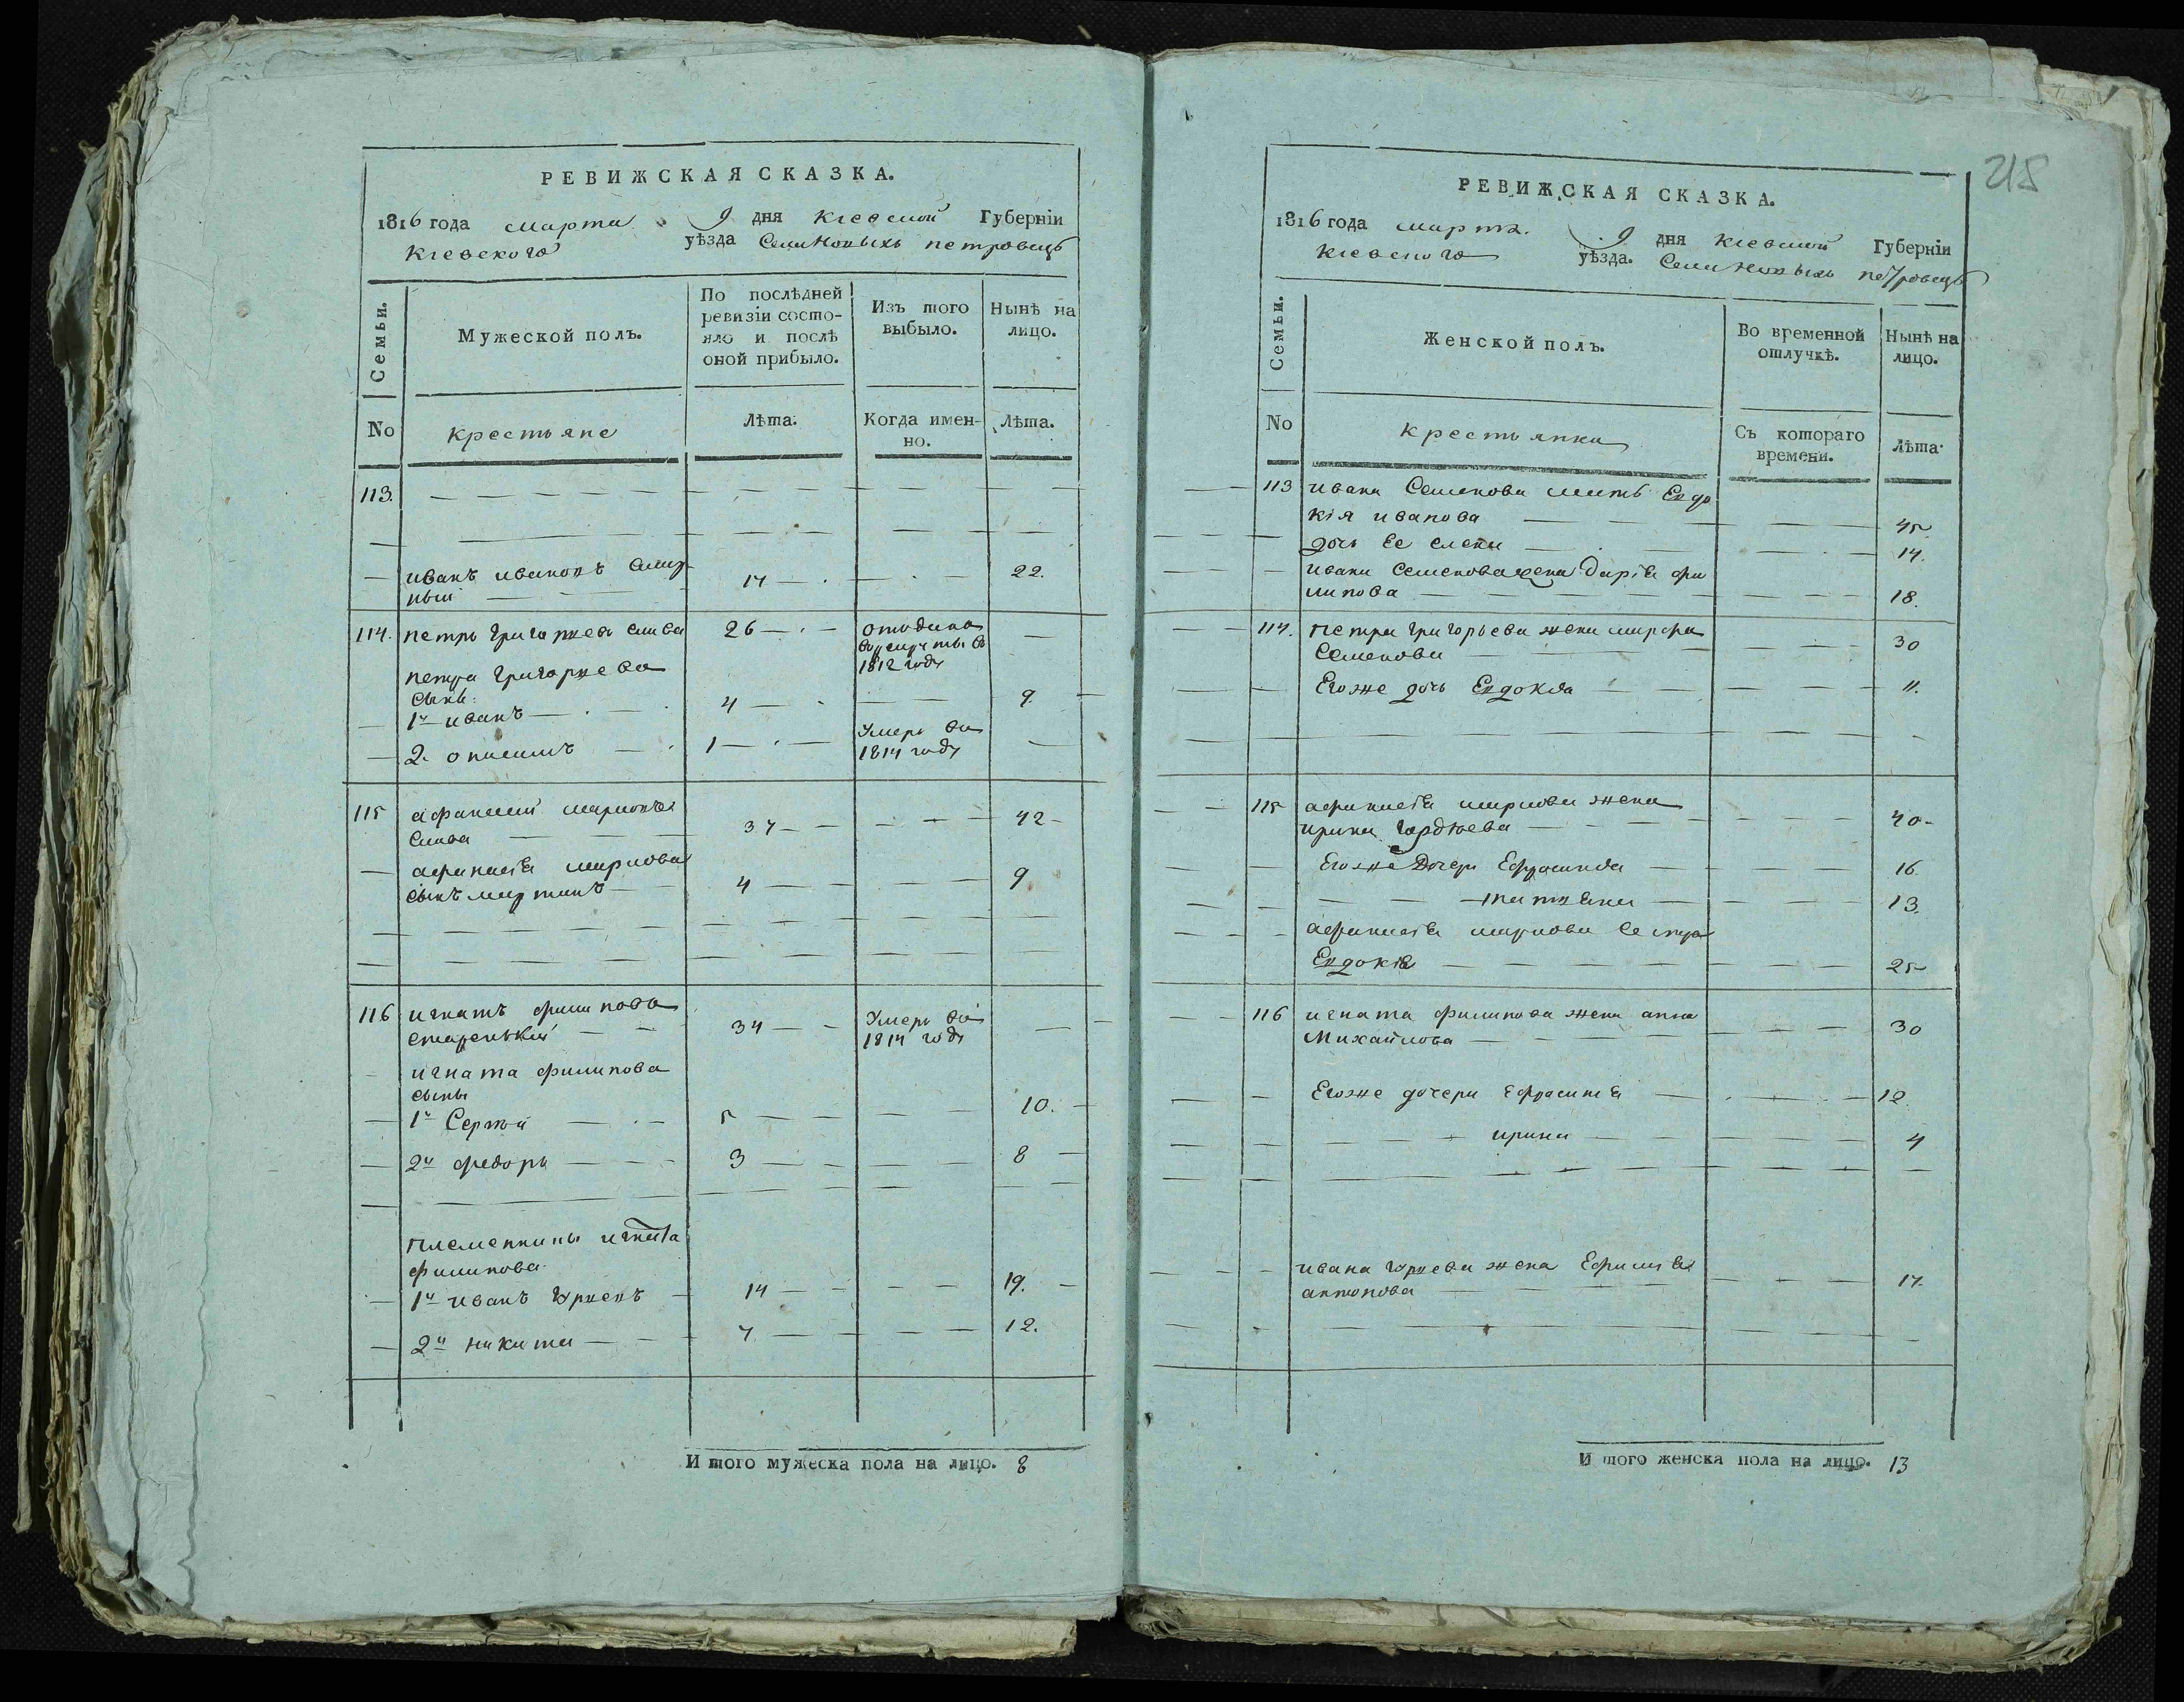 РЕВИЖСКАЯ СКАЗКА.
1816 года марта 9 дня Кіевской Губерніи
Кіевского уѣзда Села Новыхъ петровецъ
Семьи.
Мужеской полъ.
По послѣдней ревизіи состояло и послѣ оной прибыло.
Изъ того выбыло.
Нынѣ на лицо.
No
крестьяне
Лѣта.
Когда именно.
Лѣта.
113.
иванъ ивановъ 14 22.
114. петръ григоріевъ слива 26 1812 году
петра григоріева
сыны:
1й иванъ 4 9.
2. онисимъ 1 Умеръ въ
1814 году
115 афанасий марковъ
слива 37 42
афанасія маркова
сынъ мартинъ 4 9
116 игнатъ филиповъ
старенькій 34 Умеръ въ
1814 годѣ
игната филипова
сыны
1й Сергѣй 5 10.
2й федоръ 3 8
племенники игната
филипова.
1й иванъ юріевъ 14 19.
2й никита 7 12.
И того мужеска пола на лицо. 8
215
РЕВИЖСКАЯ СКАЗКА.
1816 года марта. 9 дня кіевской Губерніи
кіевского уѣзда. Села Новыхъ петровецъ
Семьи.
Женской полъ.
Во временной отлучкѣ.
Нынѣ на лицо.
No
крестьянки
Съ котораго времени.
Лѣта.
113 ивана Семенова мать Евдо
кія иванова 45
дочь Ее 14.
ивана Семенова жена дарія фи
липова 18.
114. петра григорьева жена марфа
Семенова 30
Егоже дочь Евдокія 11.
115 афанасія маркова жена
ирина гордѣева 40
Егоже Дочери Ефросинія 16.
татіяна 13.
афанасія маркова сестра
Евдокія 25
116 игната филипова жена анна
Михайлова 30
Егоже дочери Ефросинія 12
ирина 4
ивана юріева жена Ефимія
антонова 17.
И того женска пола на лицо. 13